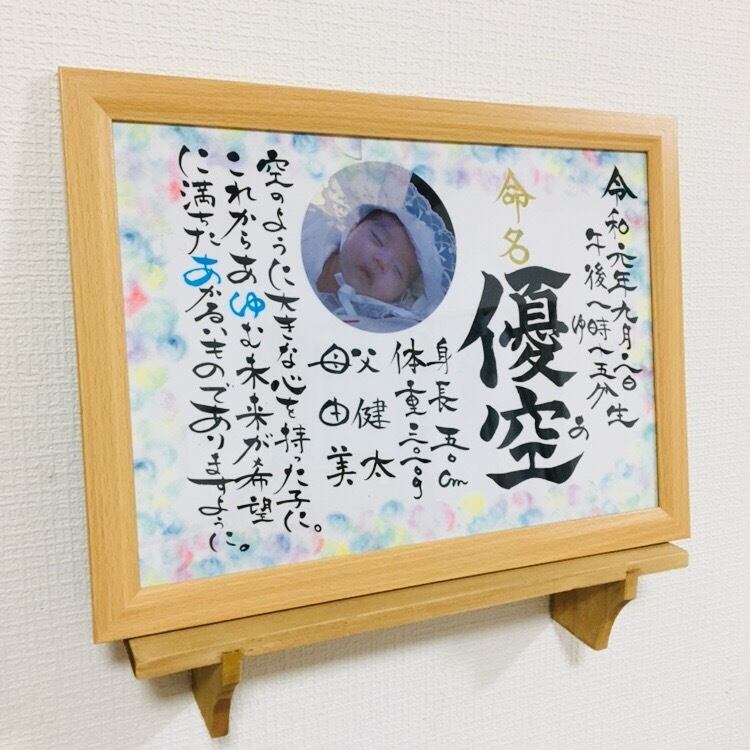 令和元年九月八日生
午後八時八五分
命名
優空
ゆ
あ
身長 五〇cm
体重 三〇二〇g
父 健太
母 由美
空のように大きな心を持った子に。
これからあゆむ未来が希望
に満ちたあかるいものでありますように。